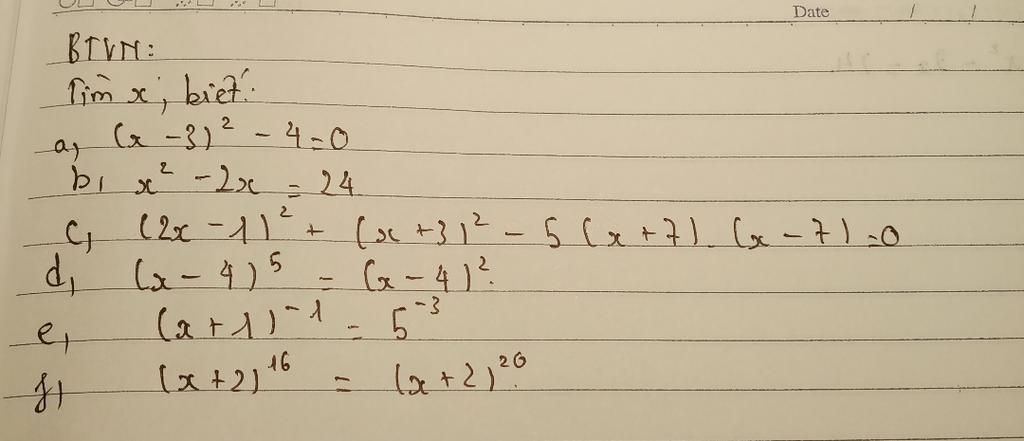 Date / /
BTVN:
Tìm x, biết:
a, (x - 3)² - 4 = 0
b, x² - 2x = 24
c, (2x - 1)² + (x + 3)² - 5 (x + 7). (x - 7) = 0
d, (x - 4)⁵ = (x - 4)².
e, (x + 1)⁻¹ = 5⁻³
f, (x + 2)¹⁶ = (x + 2)²⁰.